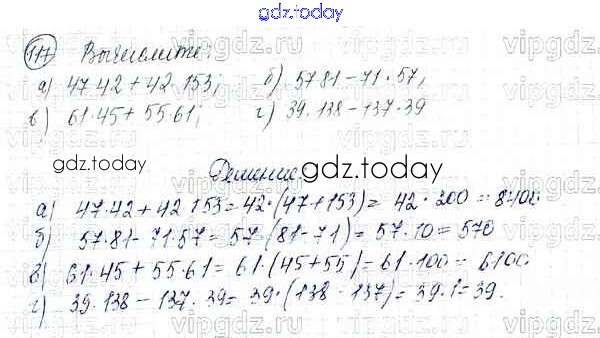 gdz.today
177 Вычислите:
а) 47·42 + 42·153; б) 57·81 − 71·57;
в) 61·45 + 55·61; г) 39·138 − 137·39
gdz.today
Решение: gdz.today
а) 47·42 + 42·153 = 42·(47+153) = 42·200 = 8400
б) 57·81 − 71·57 = 57·(81−71) = 57·10 = 570
в) 61·45 + 55·61 = 61·(45+55) = 61·100 = 6100
г) 39·138 − 137·39 = 39·(138 − 137) = 39·1 = 39.
vipgdz.ru
gdz.today